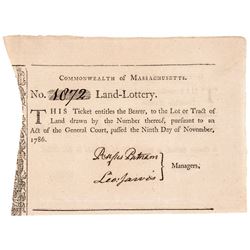 COMMONWEALTH OF MASSACHUSETTS.
No. 1072 Land-Lottery.
THIS Ticket entitles the Bearer, to the Lot or Tract of
Land drawn by the Number thereof, pursuant to an
Act of the General Court, passed the Ninth Day of November,
1786.
Rufus Putnam
Managers,
Leo: Jarvis